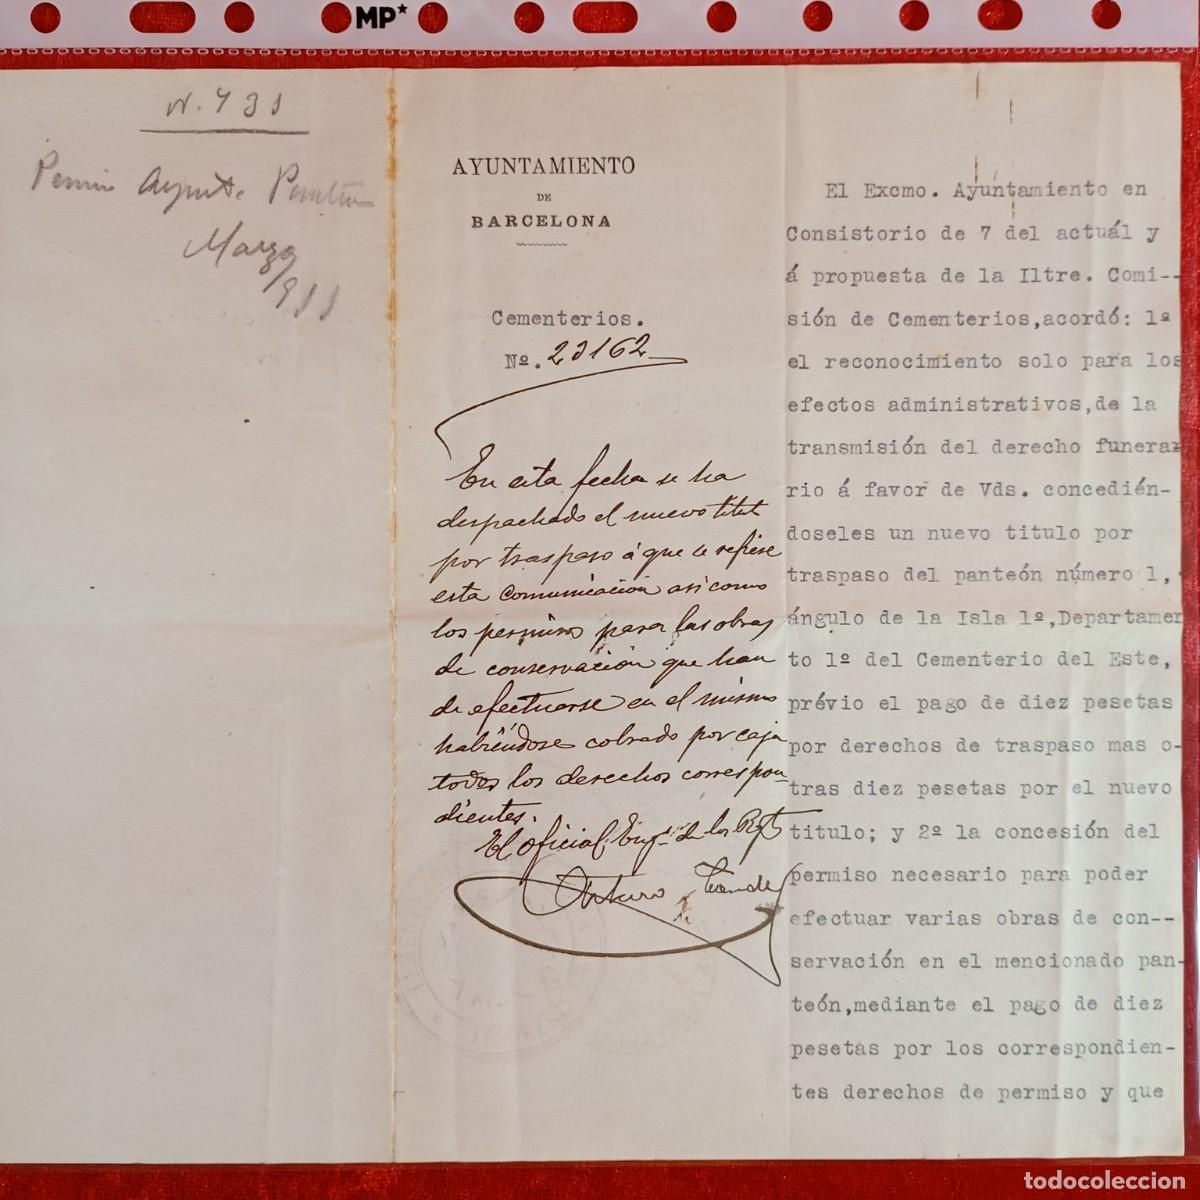 MP*
N. 731
Permiso Ayunt.
Marzo
911
AYUNTAMIENTO
DE
BARCELONA
Cementerios.
Nº. 23162
En esta fecha se ha
despachado el nuevo titulo
por traspaso á que se refiere
esta comunicación así como
los permisos para las obras
de conservación que han
de efectuarse en el mismo
habiéndose cobrado por caja
todos los derechos correspon-
dientes.
El oficial de los
Arturo
El Excmo. Ayúntamiento en
Consistorio de 7 del actuál y
á propuesta de la Iltre. Comi--
sión de Cementerios,acordó: 1º
el reconocimiento solo para los
efectos administrativos,de la
transmisión del derecho funera-
rio á favor de Vds. concedién-
doseles un nuevo titulo por
traspaso del panteón número 1,
ángulo de la Isla 1ª,Departamen
to 1º del Cementerio del Este,
prévio el pago de diez pesetas
por derechos de traspaso mas o-
tras diez pesetas por el nuevo
titulo; y 2º la concesión del
permiso necesario para poder
efectuar varias obras de con--
servación en el mencionado pan-
teón,mediante el pago de diez
pesetas por los correspondien-
tes derechos de permiso y que
todocoleccion